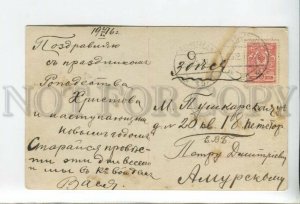 1916г.
Поздравляю
съ праздникомъ
Рождества
Христова
и наступающимъ
новымъ годомъ
Старайся провес-
ти эти дни весел
и мы въ
Вася
Здѣсь
М. Пушкарская ул.
д. 28 кв. 18
Е.В.Б.
Петру Дмитріевичу
Амурскому
NOT FOR COPY